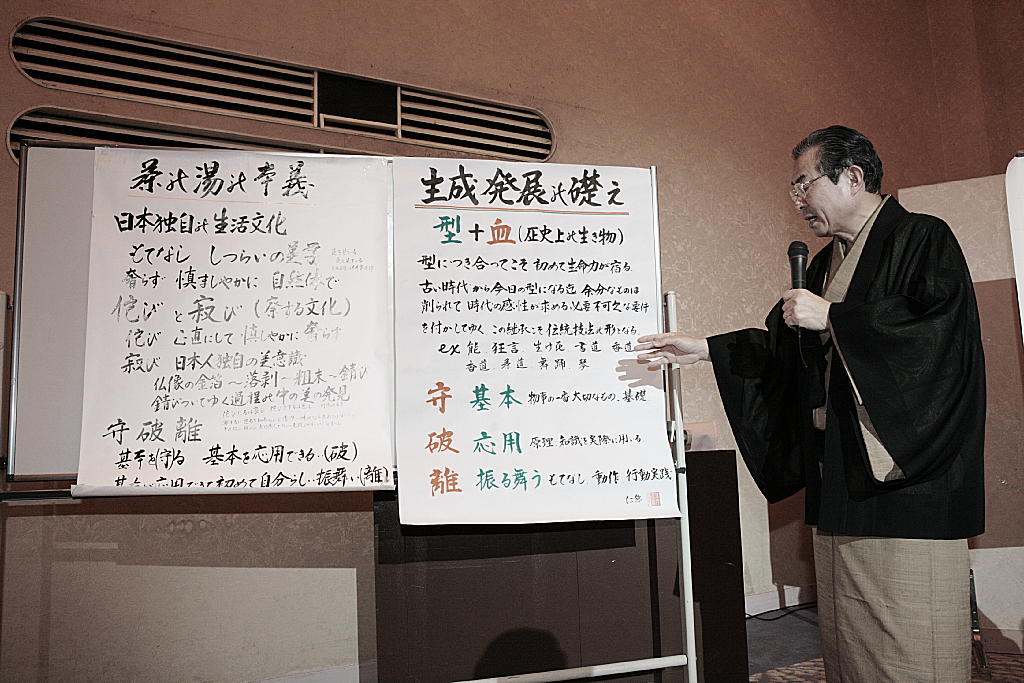 茶の湯の本義
日本独自の生活文化
もてなし しつらいの美学
奢らず 慎ましやかに 自然体で
侘び と 寂び (察する文化)
侘び 心直にして 慎しやかに 奢らず
寂び 日本人独自の美意識
仏像の金箔～落剥～粗末～錆び
錆びついてゆく過程の中の美の発見
守 破 離
基本を守る 基本を応用できる (破)
基本が応用できて初めて自分らしい振舞い (離)
生成発展の礎え
型+血 (歴史上の生き物)
型につき合ってこそ 初めて生命力が宿る
古い時代から今日の型になる迄 余分なものは
削られて 時代の感性が求める必要不可欠な要件
を付加してゆく この継承こそ伝統技法の形となる
ex 能 狂言 生け花 書道 香道
香道 柔道 舞踊 琴
守 基本 物事の一番大切なもの、基礎
破 応用 原理、知識を実際に用いる
離 振る舞う もてなし 動作 行動実践